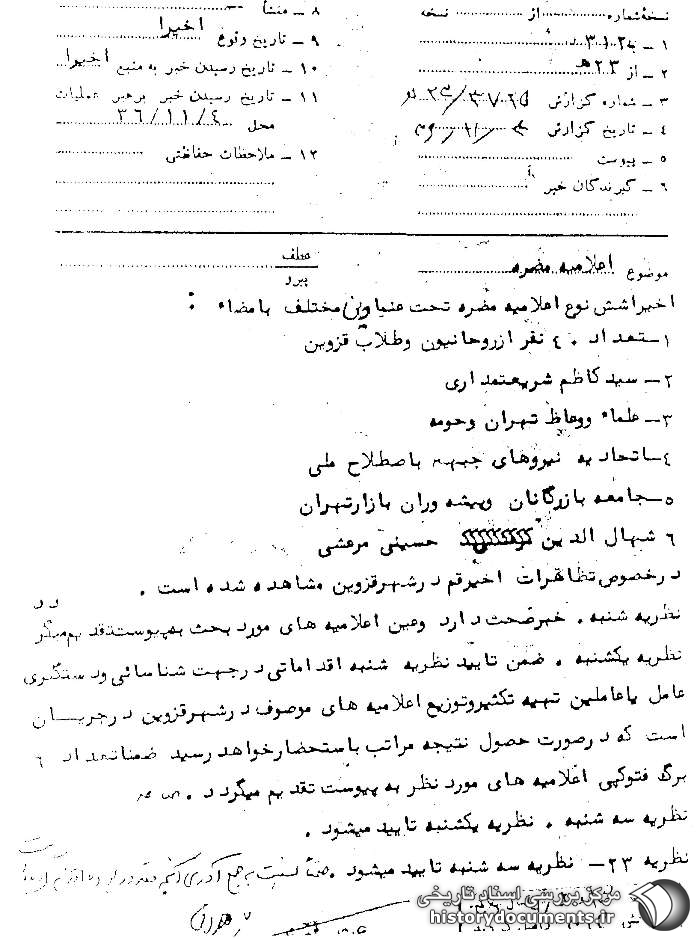 نسخهٔ شماره از نسخه
۱ – به ۳۱۲
۲ – از ۲۳ هـ
۳ – شماره گزارش
۴ – تاریخ گزارش
۵ – پیوست
۶ – گیرندگان خبر
۸ – منشأ
۹ – تاریخ وقوع اخیرا
۱۰ – تاریخ رسیدن خبر به منبع اخیرا
۱۱ – تاریخ رسیدن خبر برهبر عملیات
محل ۳۶/۱۱/۴
۱۲ – ملاحظات حفاظتی
موضوع اعلامیه مضره
عطف
پیرو
اخیراشش نوع اعلامیه مضره تحت عناوین مختلف بامضاء :
۱–تعداد ۴۰ نفر ازروحانیون وطلاب قزوین
۲– سید کاظم شریعتمداری
۳– علماء ووعاظ تهران وحومه
۴–اتحادیه نیروهای جبهه باصطلاح ملی
۵–جامعه بازرگانان وپیشه وران بازارتهران
۶ شهال الدین حسینی مرعشی
درخصوص تظاهرات اخیرقم درشهرقزوین مشاهده شده است .
نظریه شنبه . خبرصحت دارد وعین اعلامیه های مورد بحث به پیوست تقدیم میگر
دد
نظریه یکشنبه . ضمن تایید نظریه شنبه اقداماتی درجهت شناسائی ودستگیری
عامل یاعاملین تهیه تکثیروتوزیع اعلامیه های موصوف درشهرقزوین درجریان
است که درصورت حصول نتیجه مراتب باستحضارخواهد رسید ضمناتعداد ۶
برگ فتوکپی اعلامیه های مورد نظر به پیوست تقدیم میگردد .
نظریه سه شنبه . نظریه یکشنبه تایید میشود .
نظریه ۲۳– نظریه سه شنبه تایید میشود .
مرکز بررسی اسناد تاریخی
historydocuments.ir